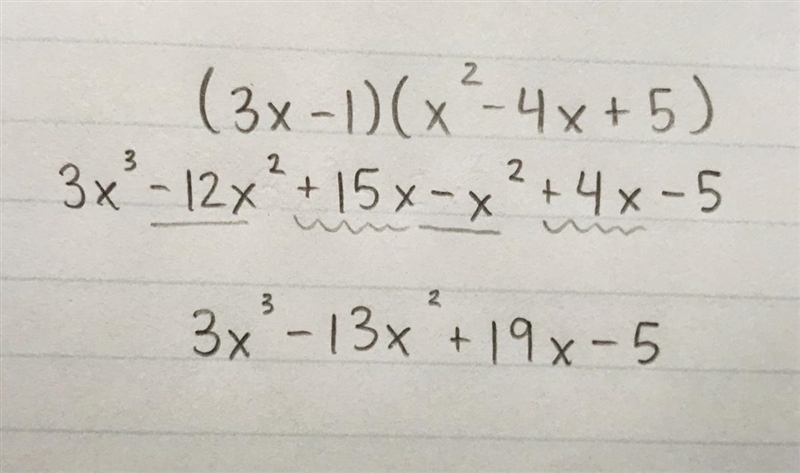 (3x-1)(x²-4x+5)
3x³-12x²+15x-x²+4x-5
3x³-13x²+19x-5